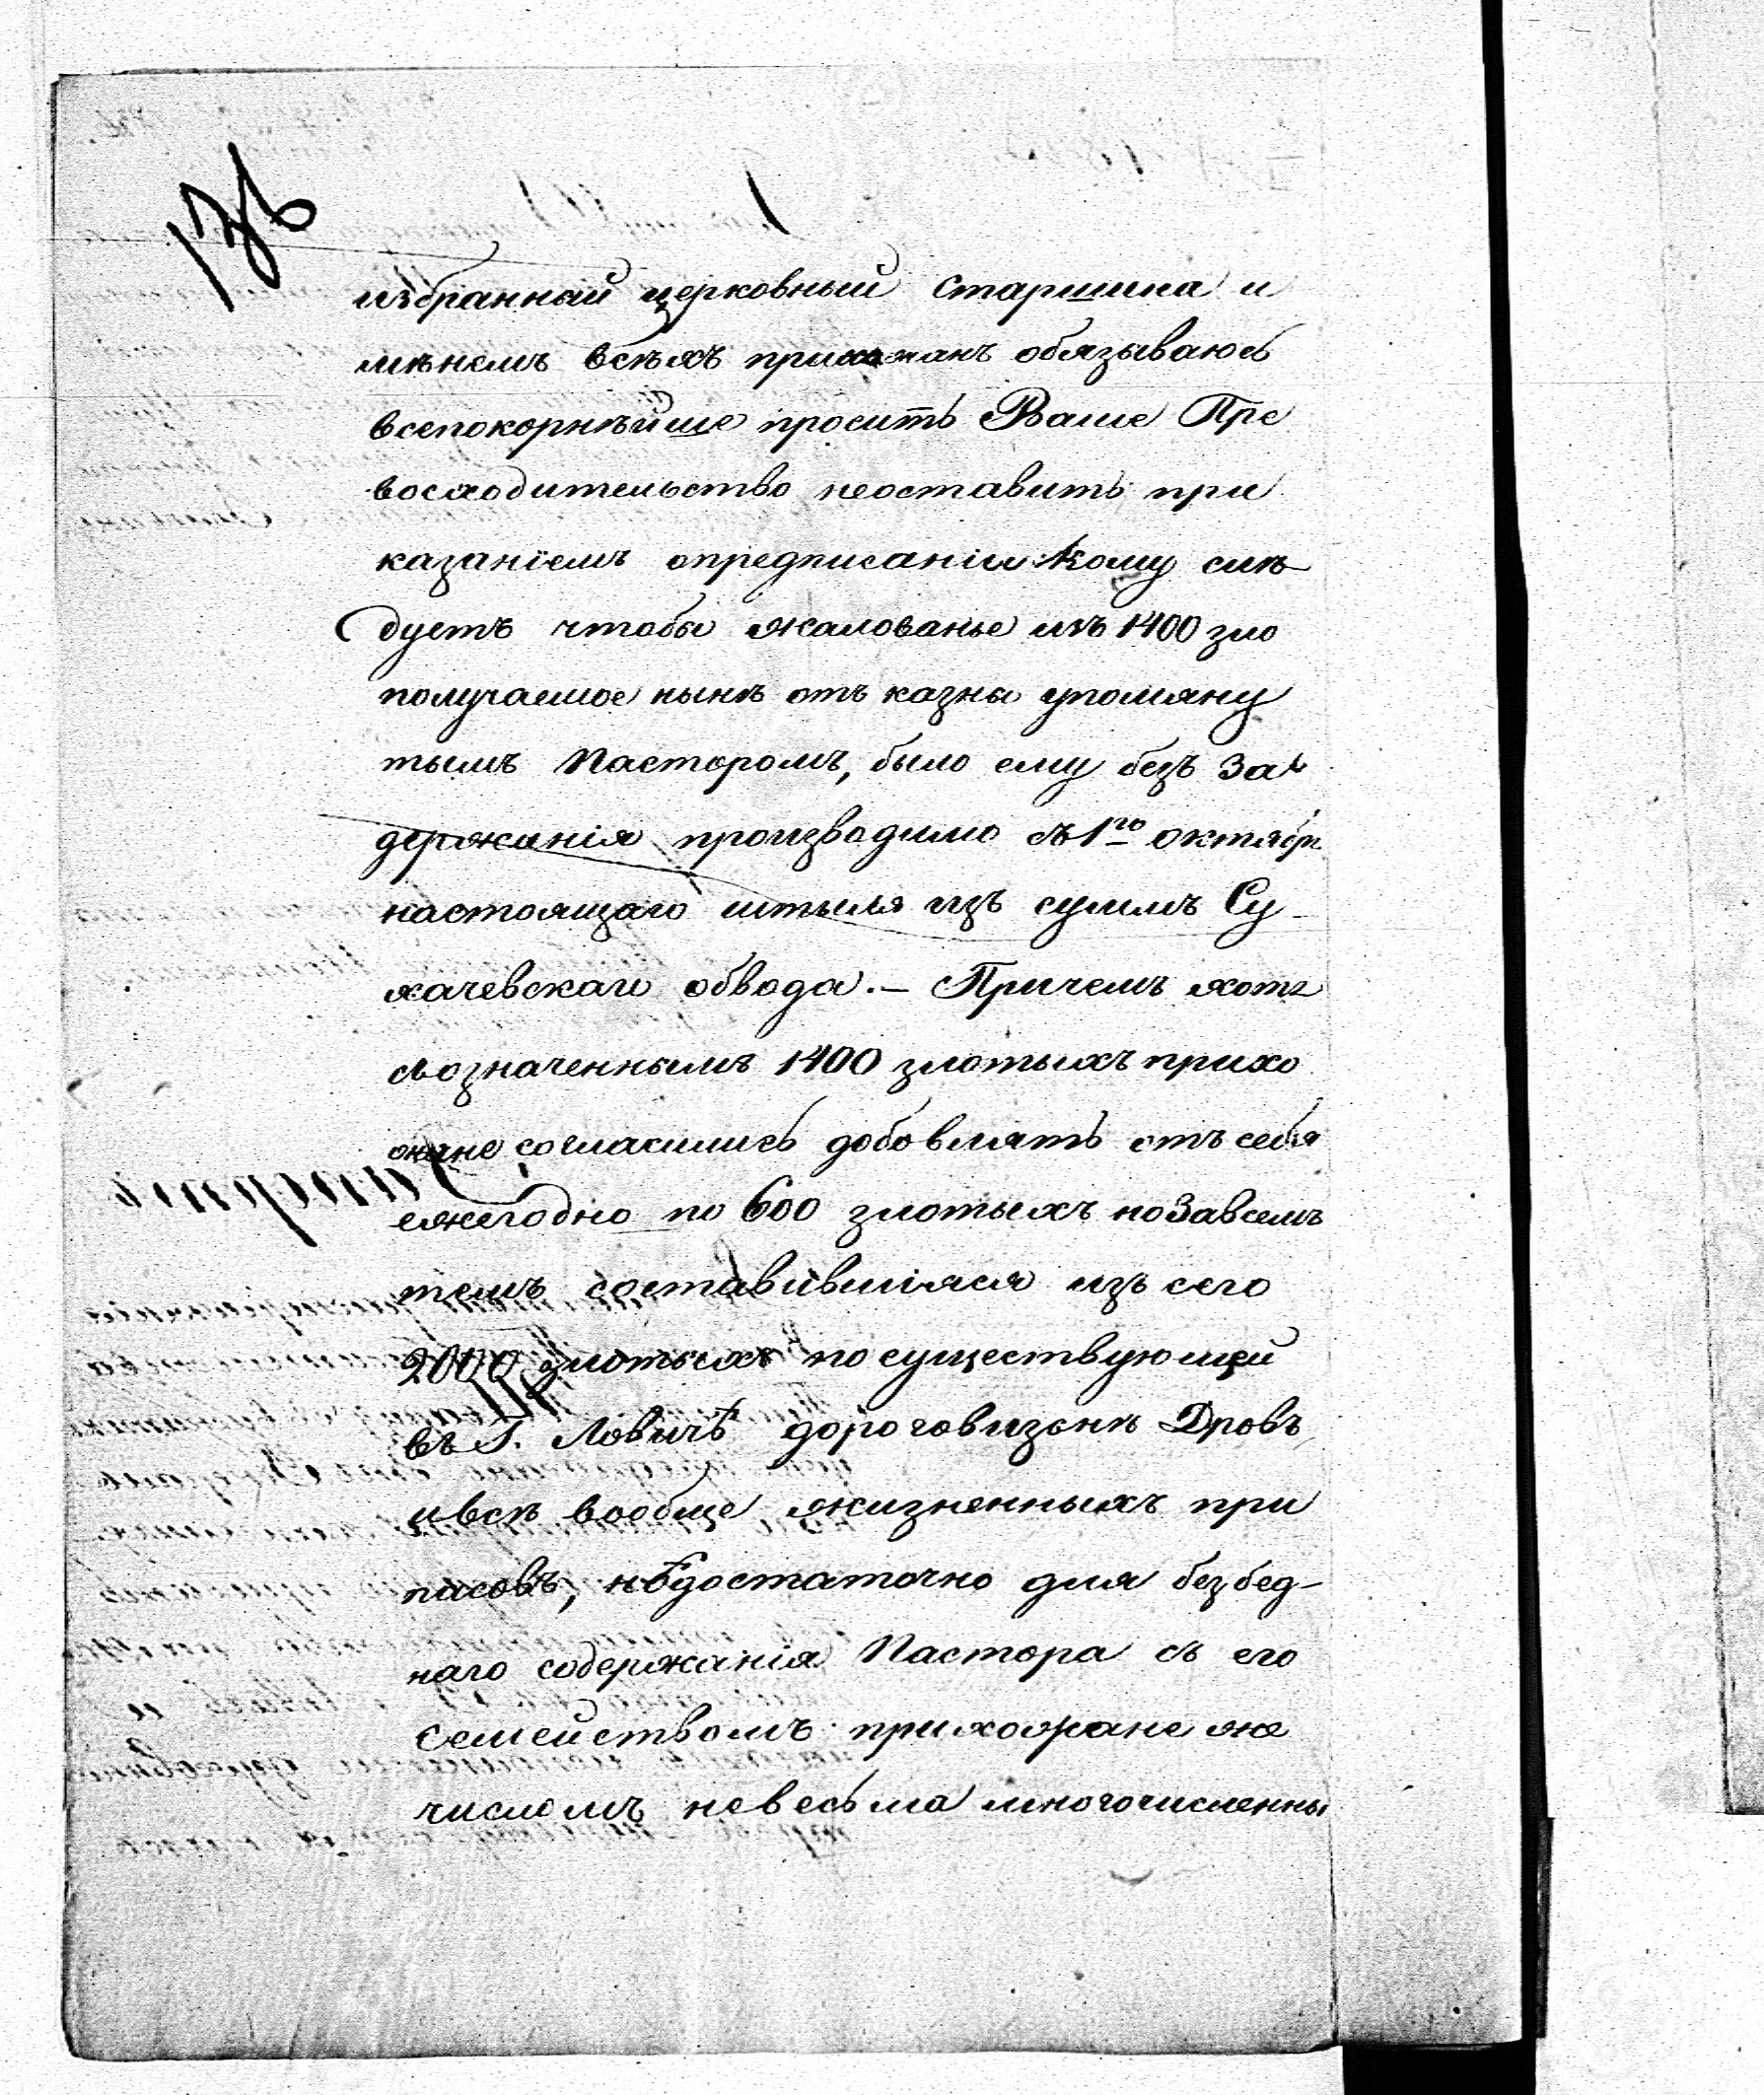 избранный церковный Старшина и
мѣнемъ всѣхъ прихожанъ обязываюсь
всепокорнѣйше просить Ваше Пре
восходительство неоставить при
казаніемъ опредписаніи кому слѣ
дуетъ чтобы жалованье изъ 1400 зло
получаемое нынѣ отъ казны упомяну
тымъ Пасторомъ, было ему безъ За
держанія производимо съ 1го октября
настоящаго штыля изъ суммъ Су
хачевскаго обвода. — Причемъ хотя
съозначеннымъ 1400 злотыхъ прихо
жане согласились добовлять отъ себя
ежегодно по 600 злотыхъ но Завсемъ
темъ составившіяся изъ сего
2000 злотыхъ по существующей
въ Г. Ловичѣ дороговизнѣ Дровъ
ивсѣ вообще жизненныхъ при
пасовъ, недостаточно для безбед-
наго содержанія Пастора съ его
Семействомъ прихожане же
числомъ невесьма многочисленны